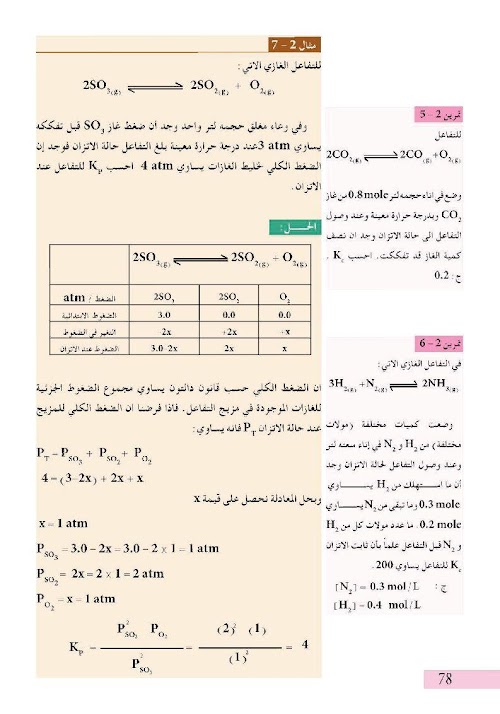 مثال 2 - 7
للتفاعل الغازي الاتي :
2SO3(g) ⇌ 2SO2(g) + O2(g)
وفي وعاء مغلق حجمه لتر واحد وجد أن ضغط غاز SO3 قبل تفككه
يساوي 3 atm عند درجة حرارة معينة بلغ التفاعل حالة الاتزان فوجد إن
الضغط الكلي لخليط الغازات يساوي 4 atm احسب Kp للتفاعل عند
الاتزان.
الحـــل :
2SO3(g) ⇌ 2SO2(g) + O2(g)
الضغط / atm 2SO3 2SO2 O2
الضغوط الابتدائية 3.0 0.0 0.0
التغير في الضغوط 2x +2x +x
الضغوط عند الاتزان 3.0-2x 2x x
ان الضغط الكلي حسب قانون دالتون يساوي مجموع الضغوط الجزئية
للغازات الموجودة في مزيج التفاعل . فاذا فرضنا ان الضغط الكلي للمزيج
عند حالة الاتزان PT فانه يساوي :
PT = PSO3 + PSO2 + PO2
4 = (3-2x) + 2x + x
وبحل المعادلة نحصل على قيمة x
x = 1 atm
PSO3 = 3.0 - 2x = 3.0 - 2 × 1 = 1 atm
PSO2 = 2x = 2 × 1 = 2 atm
PO2 = x = 1 atm
Kp = P²SO2 PO2 / P²SO3 = (2)² (1) / (1)² = 4
تمرين 2 - 5
للتفاعل
2CO2(g) ⇌ 2CO(g) + O2(g)
وضع في اناء حجمه لتر 0.8 mole من غاز
CO2 وبدرجة حرارة معينة وعند وصول
التفاعل الى حالة الاتزان وجد ان نصف
كمية الغاز قد تفككت. احسب Kc .
ج : 0.2
تمرين 2 - 6
في التفاعل الغازي الاتي :
3H2(g) + N2(g) ⇌ 2NH3(g)
وضعت كميات مختلفة (مولات
مختلفة) من H2 و N2 في إناء سعته لتر
وعند وصول التفاعل لحالة الاتزان وجد
أن ما استهلك من H2 يساوي
0.3 mole وما تبقى من N2 يساوي
0.2 mole . ما عدد مولات كل من H2
و N2 قبل التفاعل علماً بأن ثابت الاتزان
Kc للتفاعل يساوي 200 .
ج : [N2] = 0.3 mol/L
[H2] = 0.4 mol/L
78